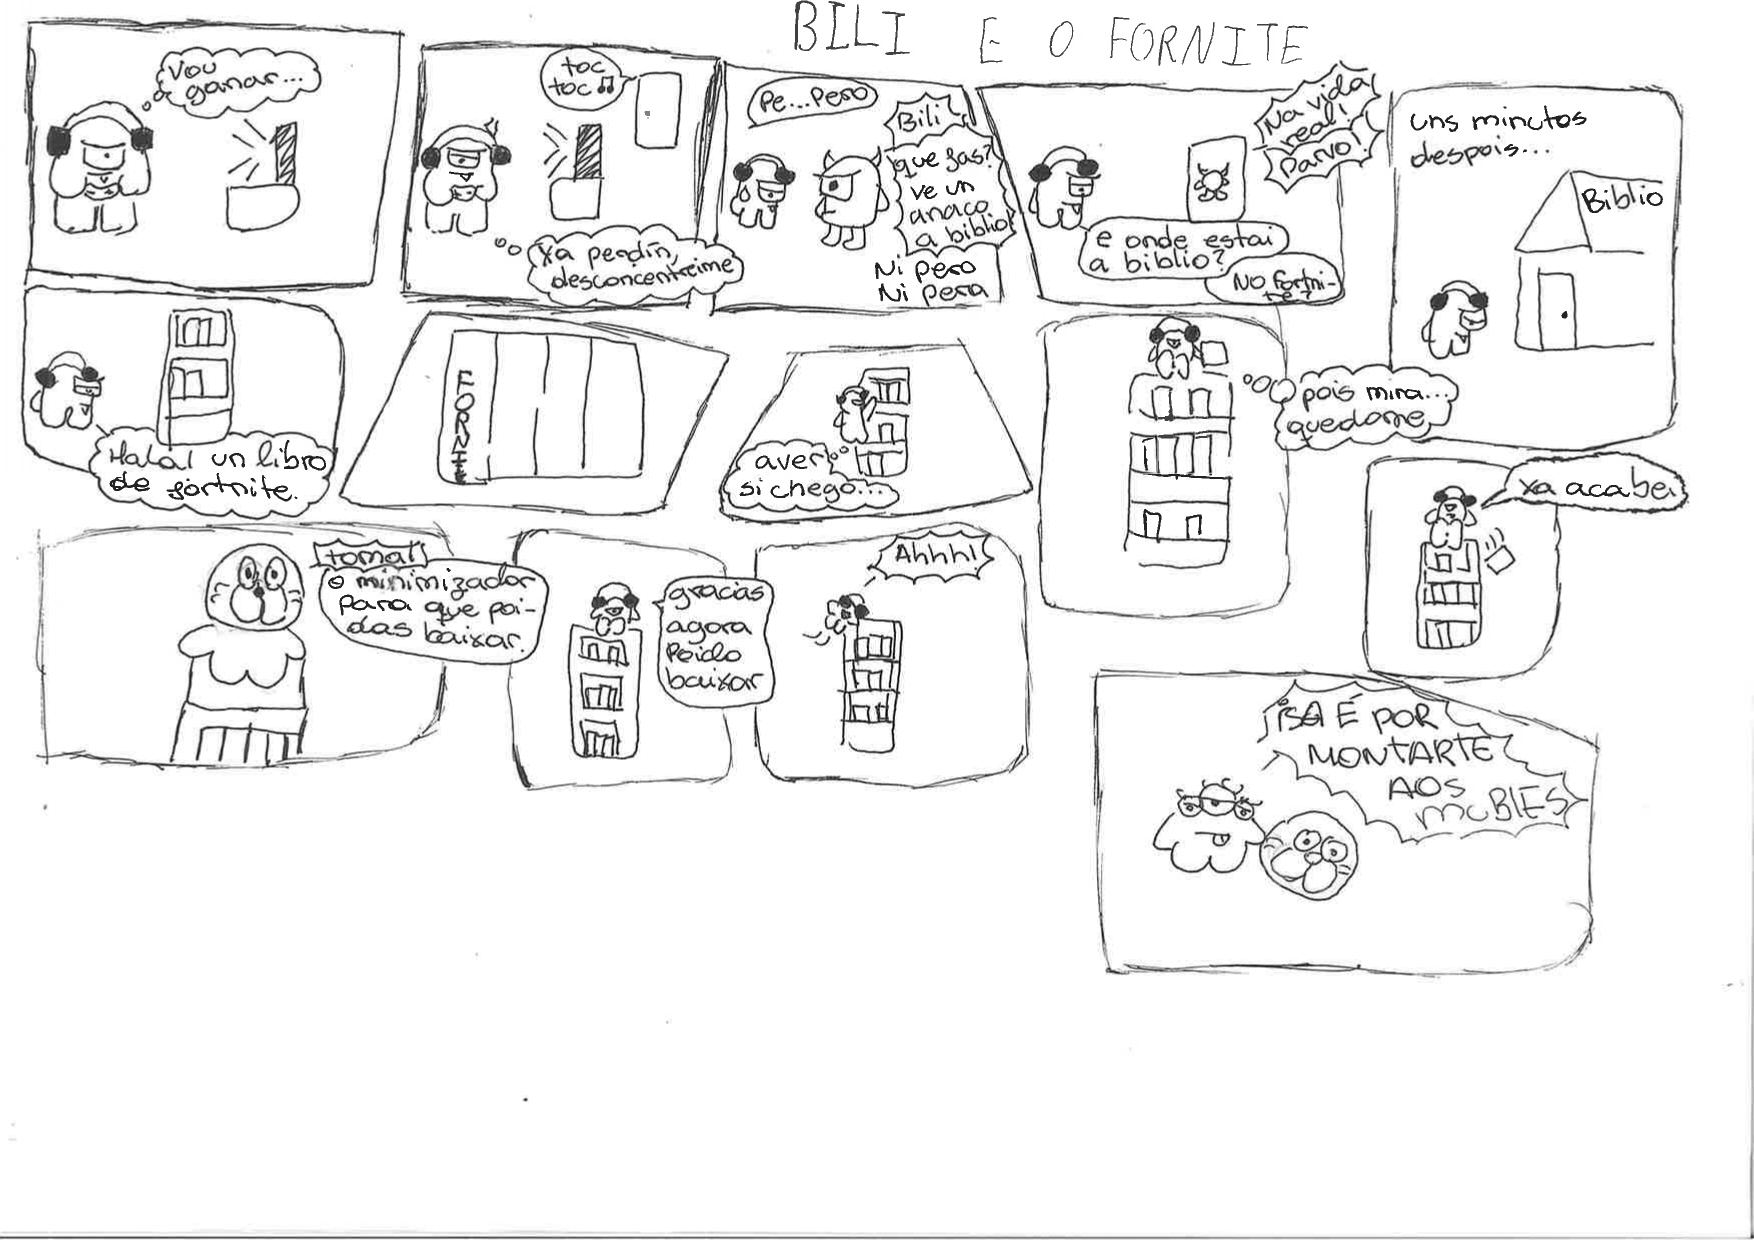 BILI E O FORNITE
Vou
ganar...
toc
toc ♫
Xa perdín,
desconcentreime
Pe...Pero
Bili
que fas?
ve un
anaco
a biblio
Ni pero
Ni pera
Na vida
real!
Parvo!
e onde estai
a biblio?
No fortni-
te?
uns minutos
despois...
Biblio
Hala! un libro
de fortnite.
FORNITE
aver
si chego...
pois mira...
quedome,
xa acabei
toma!
o minimizador
para que poi-
das baixar.
gracias
agora
Poido
baixar
Ahhh!
¡ISA É POR
MONTARTE
AOS
muBLES